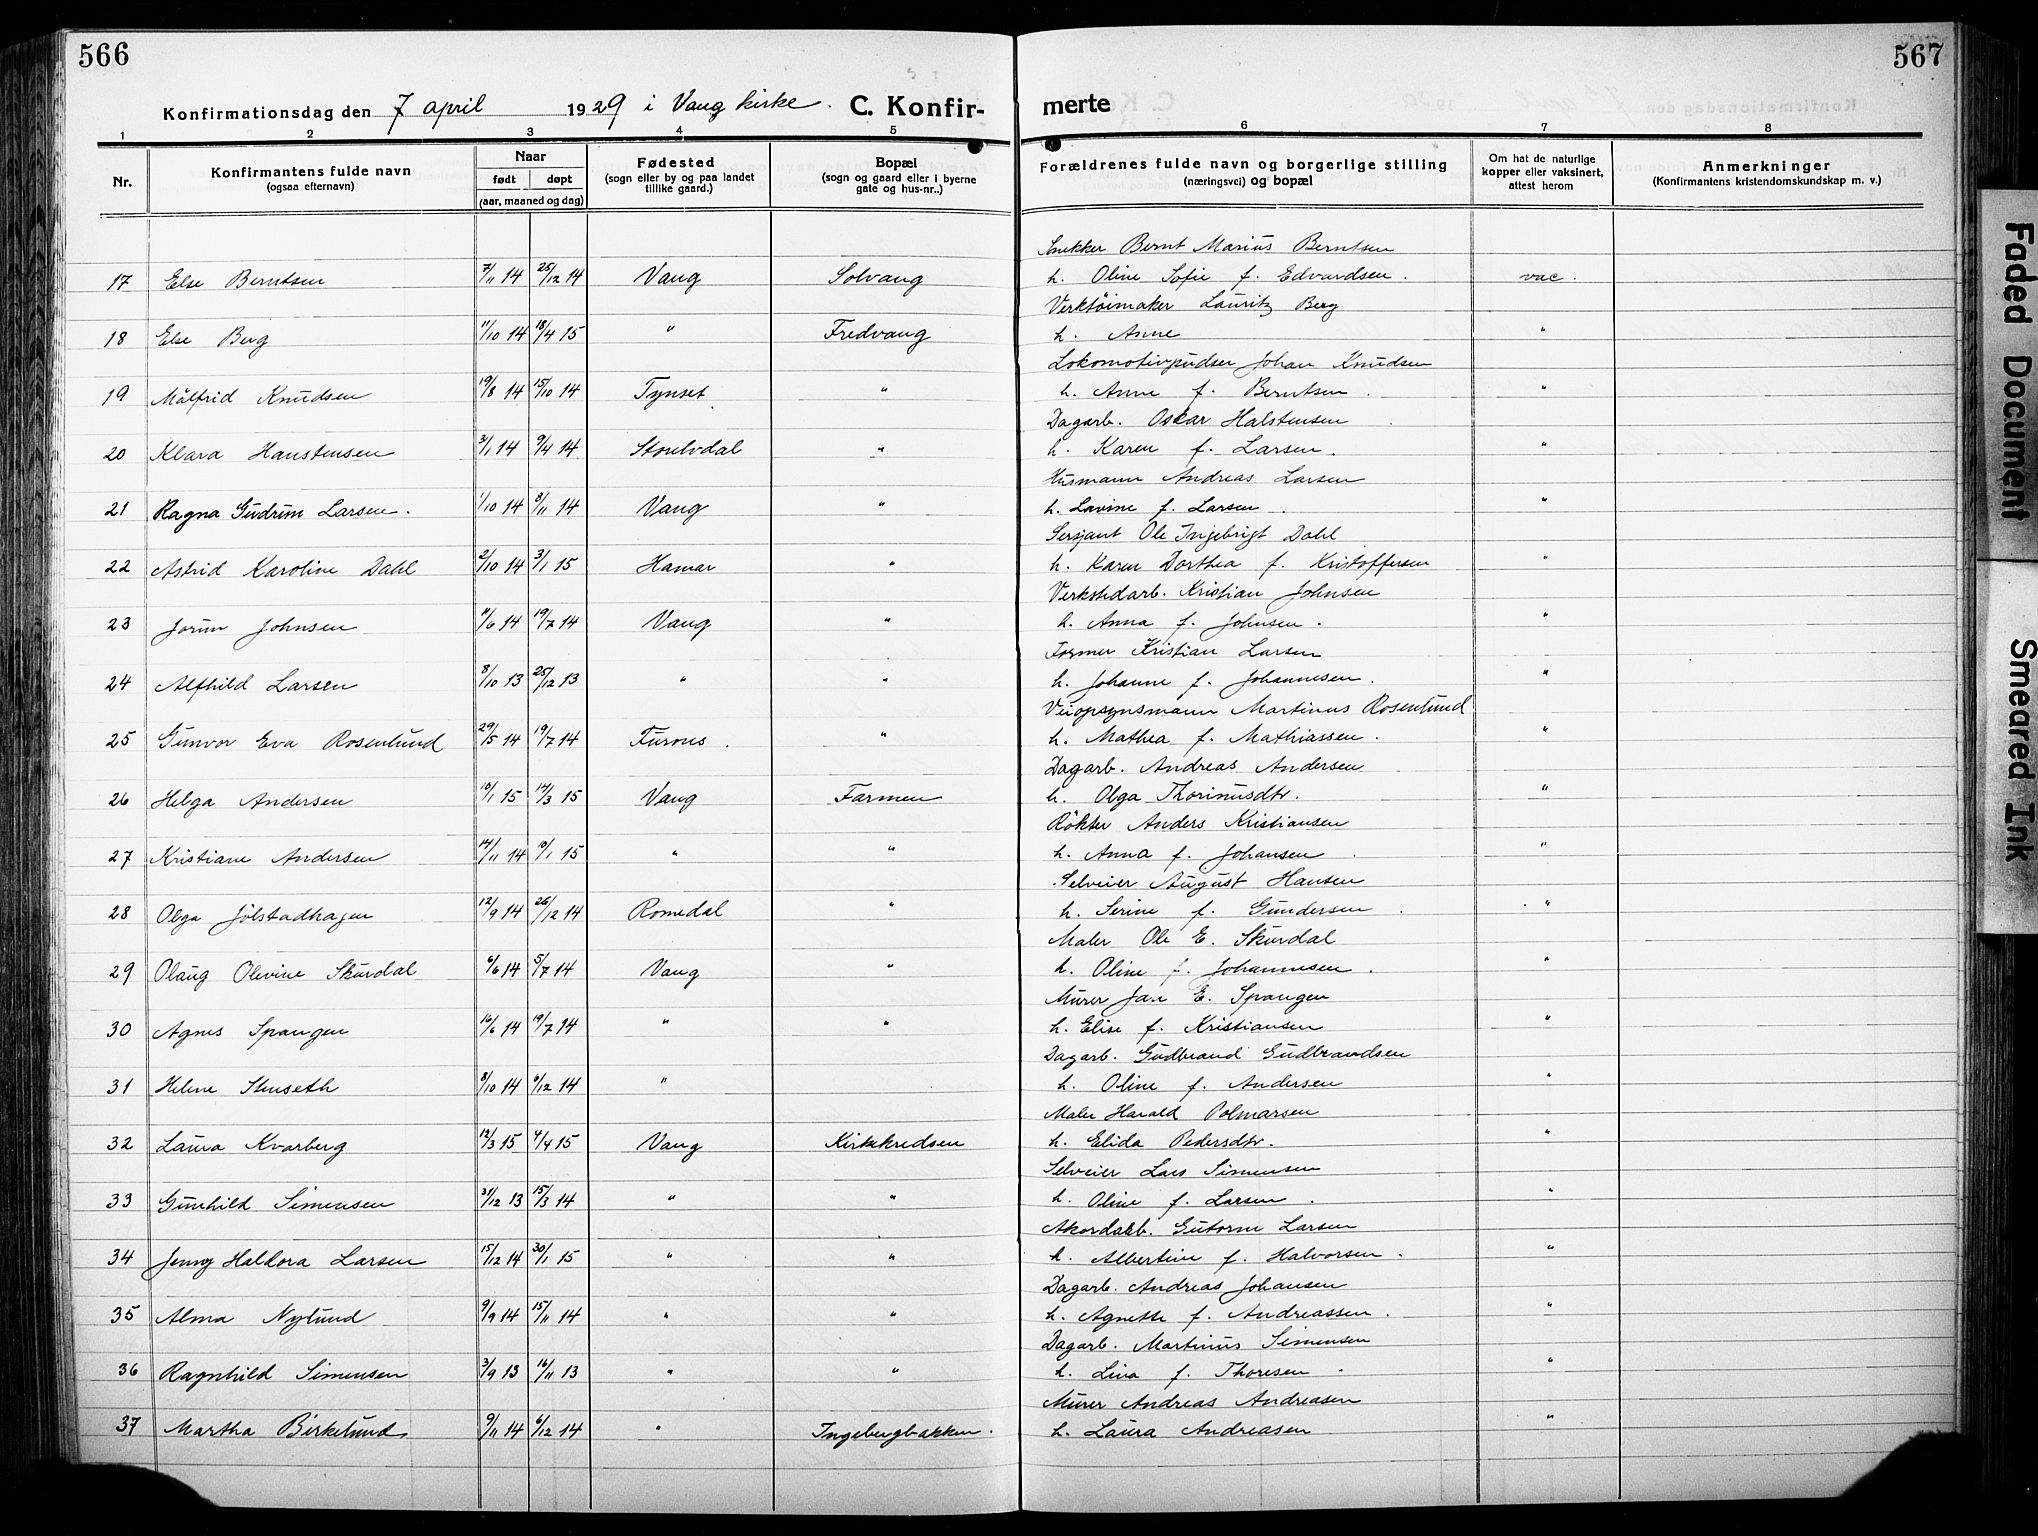 566
567
Konfirmationsdag den 7 april 1929 i Vang kirke. C. Konfir-
merte
1 2 3 4 5 6 7 8
Nr.
Konfirmantens fulde navn
(ogsaa efternavn)
Naar
født døpt
(aar, maaned og dag)
Fødested
(sogn eller by og paa landet
tillike gaard.)
Bopæl
(sogn og gaard eller i byerne
gate og hus-nr..)
Forældrenes fulde navn og borgerlige stilling
(næringsvei) og bopæl
Om hat de naturlige
kopper eller vaksinert,
attest herom
Anmerkninger
(Konfirmantens kristendomskundskap m. v.)
Snekker Bernt Marius Berntsen
17 Else Berntsen 7/11 14 25/12 14 Vang Solvang h. Oline Sofie f. Edvardsen. vac.
Verktöimaker Lauritz Berg
18 Else Berg 11/10 14 18/4 15 " Fredvang h. Anne "
Lokomotivpudser Johan Knudsen
19 Målfrid Knudsen 19/8 14 15/10 14 Tynset " h. Anne f. Berntsen. "
Dagarb. Oskar Halstensen
20 Klara Hanstensen 3/1 14 9/4 14 Storelvdal " h. Karen f. Larsen. "
Husmann Andreas Larsen
21 Ragna Gudrun Larsen. 1/10 14 8/11 14 Vang " h. Lavine f. Larsen. "
Sersjant Ole Ingebrigt Dahl
22 Astrid Karoline Dahl 2/10 14 3/1 15 Hamar " h. Karen Dorthea f. Kristoffersen "
Verkstedarb. Kristian Johnsen
23 Jorun Johnsen 11/6 14 19/7 14 Vang " h. Anna f. Johnsen. "
Former Kristian Larsen
24 Alfhild Larsen 8/10 13 25/12 13 " " h. Johanne f. Johannesen. "
Veiopsynsmann Martinus Rosenlund
25 Gunvor Eva Rosenlund 29/5 14 19/7 14 Furnes. " h. Mathea f. Mathiassen. "
Dagarb. Andreas Andersen
26 Helga Andersen 10/1 15 14/3 15 Vang Farmen h. Olga Thorinusdtr. "
Rökter Anders Kristiansen
27 Kristiane Andersen 14/11 14 10/1 15 " " h. Anna f. Johansen. "
Selveier August Hansen
28 Olga Jølstadhagen 12/9 14 26/12 14 Romedal " h. Serine f. Gundersen. "
Maler Ole E. Skurdal
29 Olaug Olevine Skurdal 6/6 14 5/7 14 Vang " h. Oline f. Johannesen. "
Murer Jan E. Spangen
30 Agnes Spangen 16/6 14 19/7 14 " " h. Elise f. Kristiansen "
Dagarb. Gudbrand Gudbrandsen
31 Helene Stenseth 8/10 14 6/12 14 " h. Oline f. Andersen "
Maler Harald Polmarsen
32 Laura Kvarberg 12/3 15 4/4 15 Vang Kirkekredsen h. Elida Pedersdtr. "
Selveier Lars Simensen
33 Gunhild Simensen 31/12 13 15/3 14 " " h. Oline f. Larsen. "
Akordarb. Gutorm Larsen
34 Jenny Haldora Larsen 15/12 14 30/1 15 " " h. Albertine f. Halvorsen. "
Dagarb. Andreas Johansen
35 Alma Nylund 9/9 14 15/11 14 " " h. Agnette f. Andreassen. "
Dagarb. Martinus Simensen
36 Ragnhild Simensen 3/9 13 16/11 13 " " h. Lina f. Thoresen. "
Murer Andreas Andreasen
37 Martha Birkelund 9/11 14 6/12 14 " Ingebergbakken. h. Laura Andreasen "
Faded Document
Smeared Ink